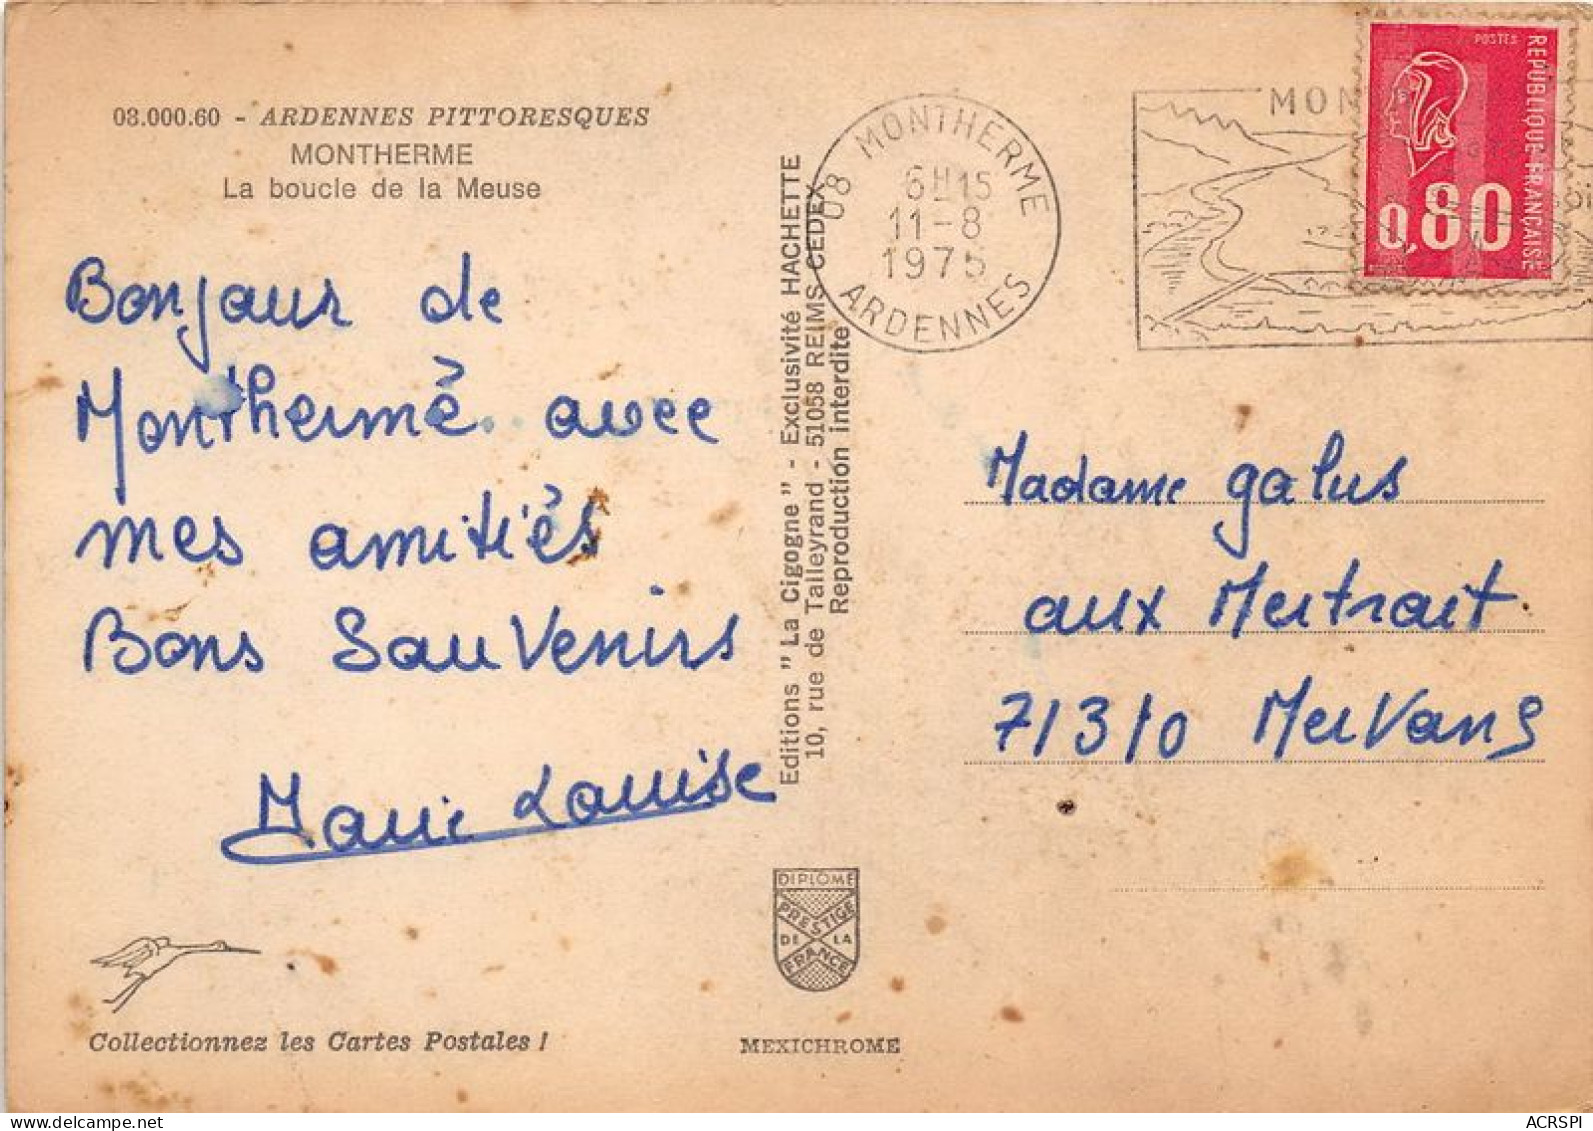 08.000.60 - ARDENNES PITTORESQUES
MONTHERME
La boucle de la Meuse
Bonjour de
Monthermé avec
mes amitiés
Bons Souvenirs
Marie Louise
Collectionnez les Cartes Postales !
Editions "La Cigogne" - Exclusivité HACHETTE
10, rue de Talleyrand - 51058 REIMS CEDEX
Reproduction interdite
DIPLOME
PRESTIGE
DE LA
FRANCE
MEXICHROME
08 MONTHERME
6H15
11-8
1975
ARDENNES
MON
POSTES
REPUBLIQUE FRANÇAISE
0,80
Madame galus
aux Mertrait
71310 Mervans
ACRSPI